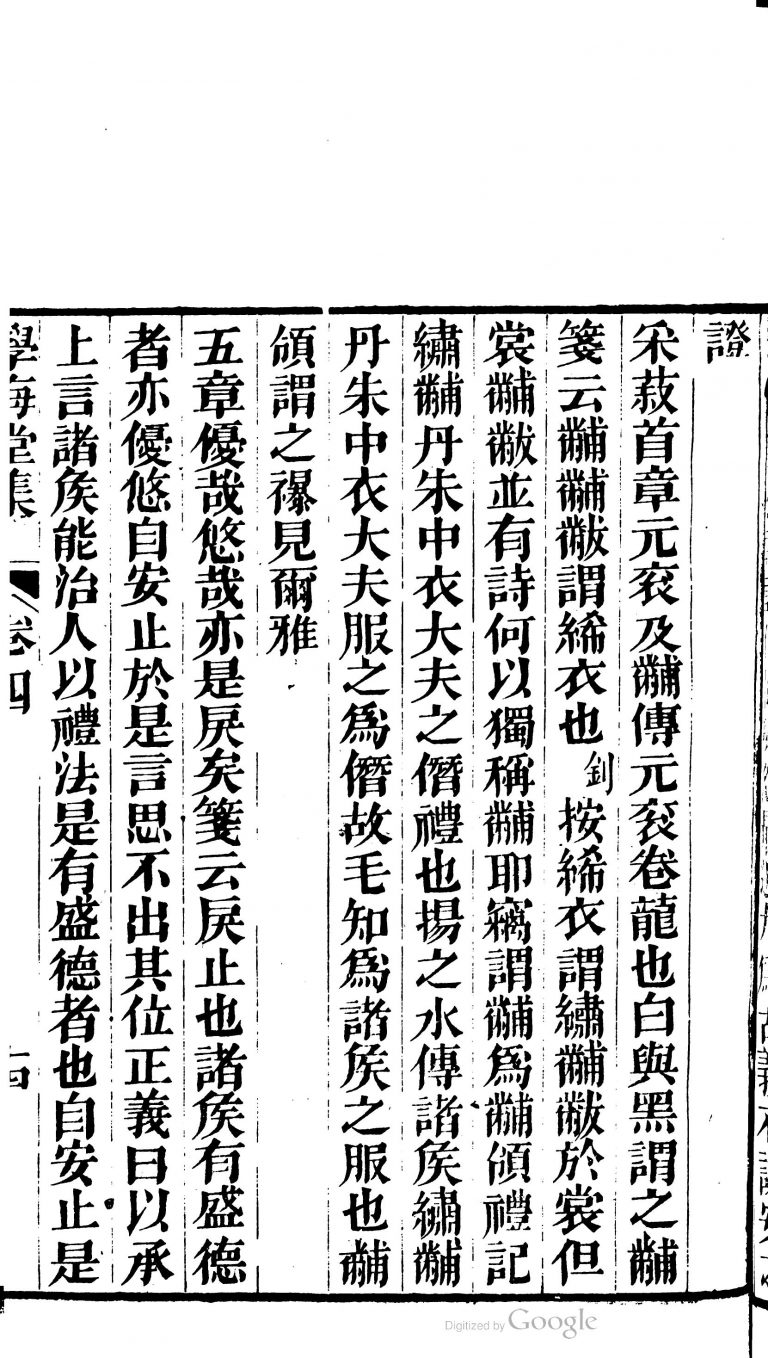 證
采菽首章元衮及黼傳元衮卷龍也白與黑謂之黼
箋云黼黼黻謂絺衣也釗按絺衣謂繡黼黻於裳但
裳黼黻並有詩何以獨稱黼耶竊謂黼為黼領禮記
繡黼丹朱中衣大夫之僭禮也揚之水傳諸矦繡黼
丹朱中衣大夫服之為僭故毛知為諸矦之服也黼
領謂之襮見爾雅
五章優哉悠哉亦是戾矣箋云戾止也諸矦有盛德
者亦優悠自安止於是言思不出其位正義曰以承
上言諸矦能治人以禮法是有盛德者也自安止是
學海堂集 卷四 古
Digitized by Google